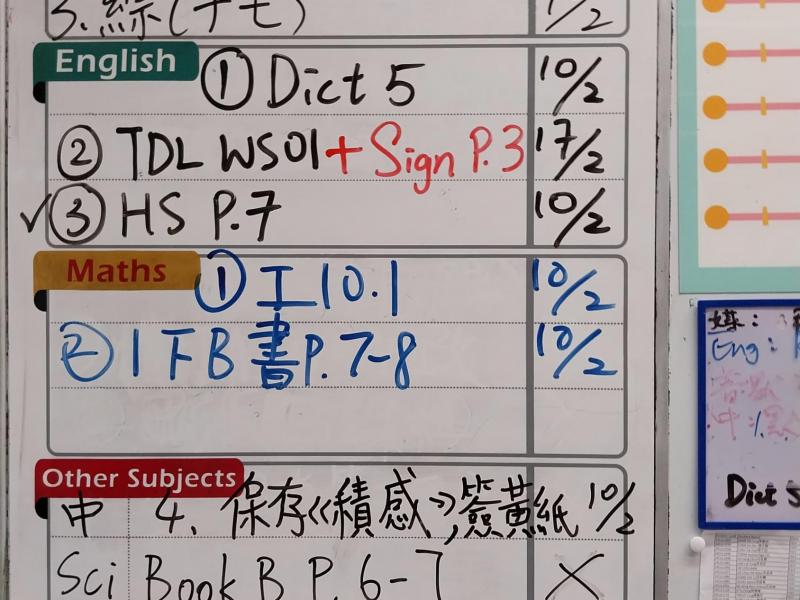 5. 綜(十七) 1/2
English ① Dict 5 10/2
② TDL WS01 + Sign P.3 17/2
✓③ HS P.7 10/2
Maths ① 工10.1 10/2
② 1下B書P.7-8 10/2
Other Subjects
中 4. 保存《積感》,簽黃紙 10/2
Sci Book B P.6-7 ×
Eng:
Dict 5